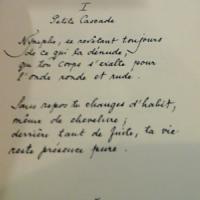 I
Petite Cascade
Nymphe, se revêtant toujours
de ce qui la dénude,
que ton corps s'exalte pour
l'onde ronde et rude.
Sans repos tu changes d'habit,
même de chevelure;
derrière tant de fuite, ta vie
reste présence pure.